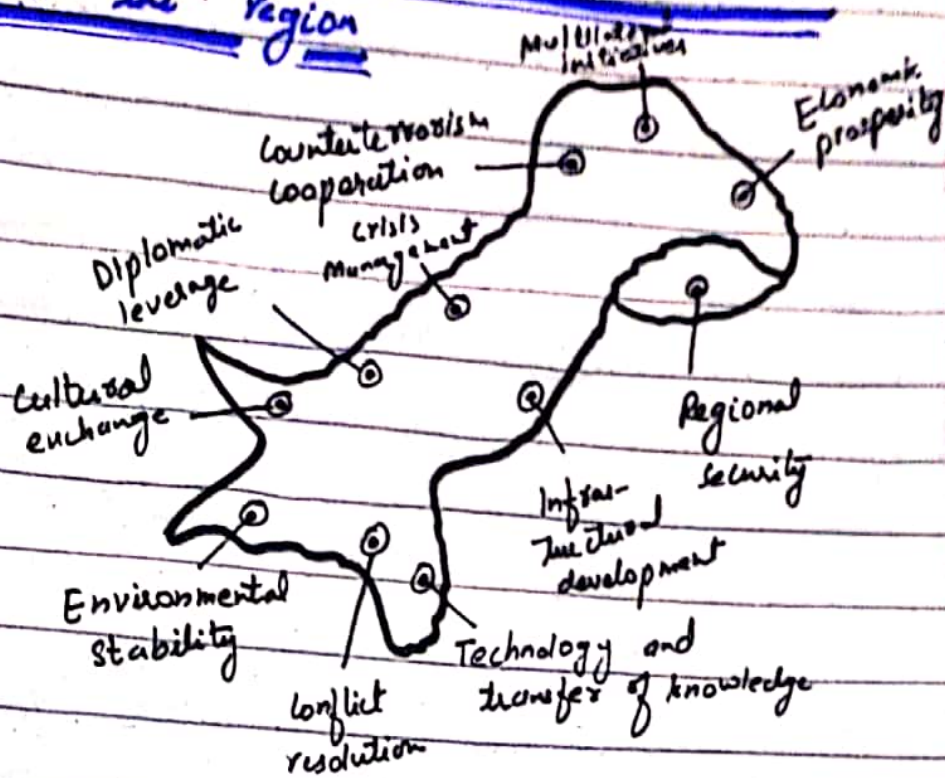 region
Multilateral
initiatives
Economic
prosperity
Counterterrorism
cooparation
Crisis
Management
Diplomatic
leverage
Cultural
enchange
Regional
security
Infras-
tructural
development
Environmental
stability
Technology and
transfer of knowledge
Conflict
resolution